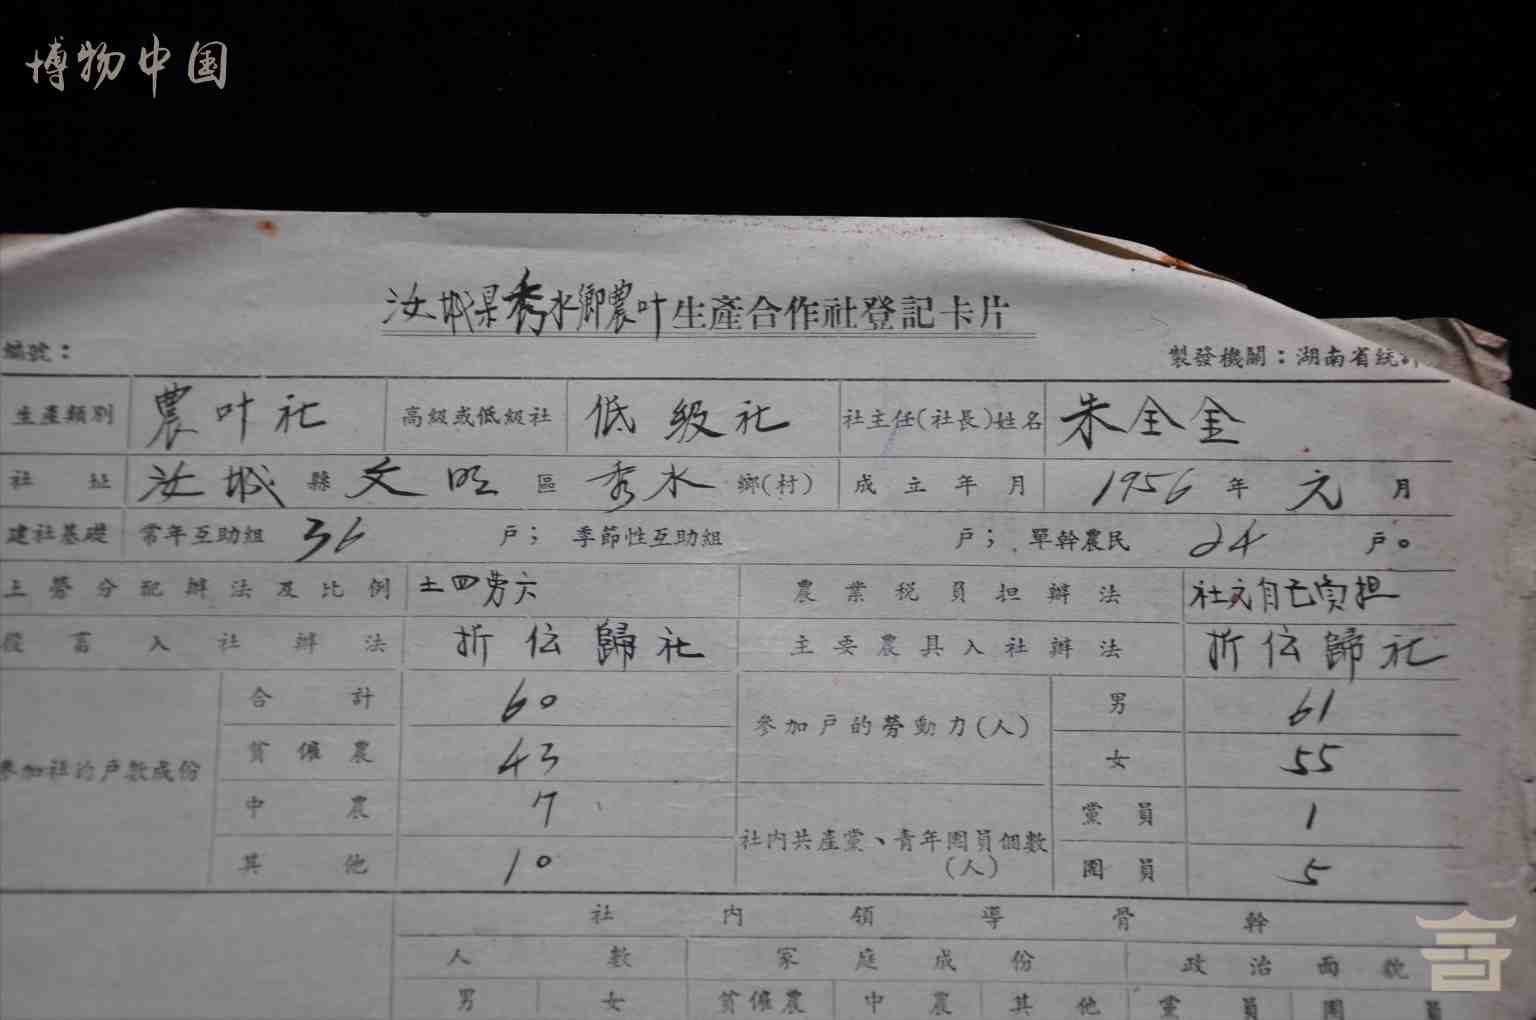 博物中国
汝城县秀水鄉農叶生產合作社登記卡片
編號：
製發機關：湖南省統計
生產類別 農叶社 高級或低級社 低級社 社主任(社長)姓名 朱全金
社址 汝城縣文明區秀水鄉(村) 成立年月 1956年元月
建社基礎 常年互助組 36 戶； 季節性互助組 戶； 單幹農民 24 戶。
土勞分配辦法及比例 土四劳六 農業税員担辦法 社文自己負担
畜入社辦法 折伝歸社 主要農具入社辦法 折伝歸社
參加社的户數成份 合計 60 參加戶的勞動力(人) 男 61
貧僱農 43 女 55
中農 7 社内共產黨、青年團員個數(人) 黨員 1
其他 10 團員 5
社内領導骨幹
人數 家庭成份 政治面貌
男 女 貧僱農 中農 其他 黨員 團員